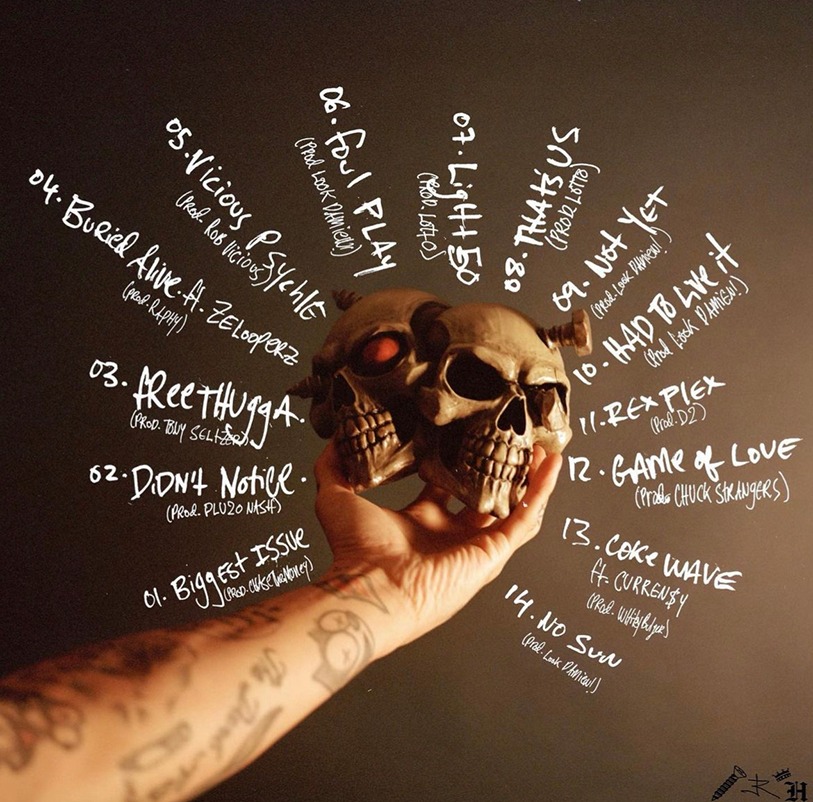 01. Biggest ISSUE
(PROD. CHASETHEMONEY)
02. DiDN't Notice.
(PROD. PLU2O NASH)
03. fREE THUggA.
(PROD. TONY SELTZER)
04. Buried Alive. ft. ZELooperz
(prod. RAPHY)
05. Vicious PSYchIE
(Prod. Rob Vicious)
06. foul PLAY
(PROD. Look DAMIEN!)
07. Light 50
(PROD. LOTTO)
08. THAts US
(PROD. LOTTO)
09. Not Yet
(PROD. Look DAMIEN!)
10. HAD To Live it
(Prod Look DAMIEN!)
11. REX PlEX
(Prod. D2)
12. GAME of LOVE
(Prod. CHUCK StRANGERS)
13. COKE WAVE
ft. CURREN$Y
14. No Sun
(Prod. Look DAMIEN!)